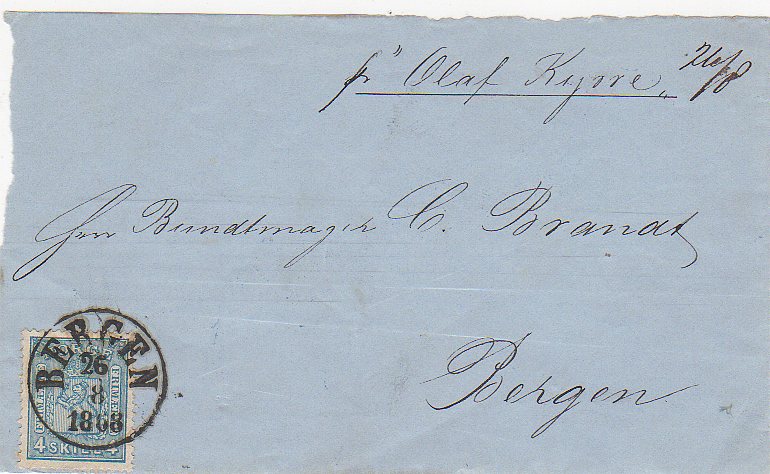 pr "Olaf Kyrre" 26/8
Herr Bundtmager C. Brandt
Bergen
BERGEN
26
8
1868
4 SKILL 4